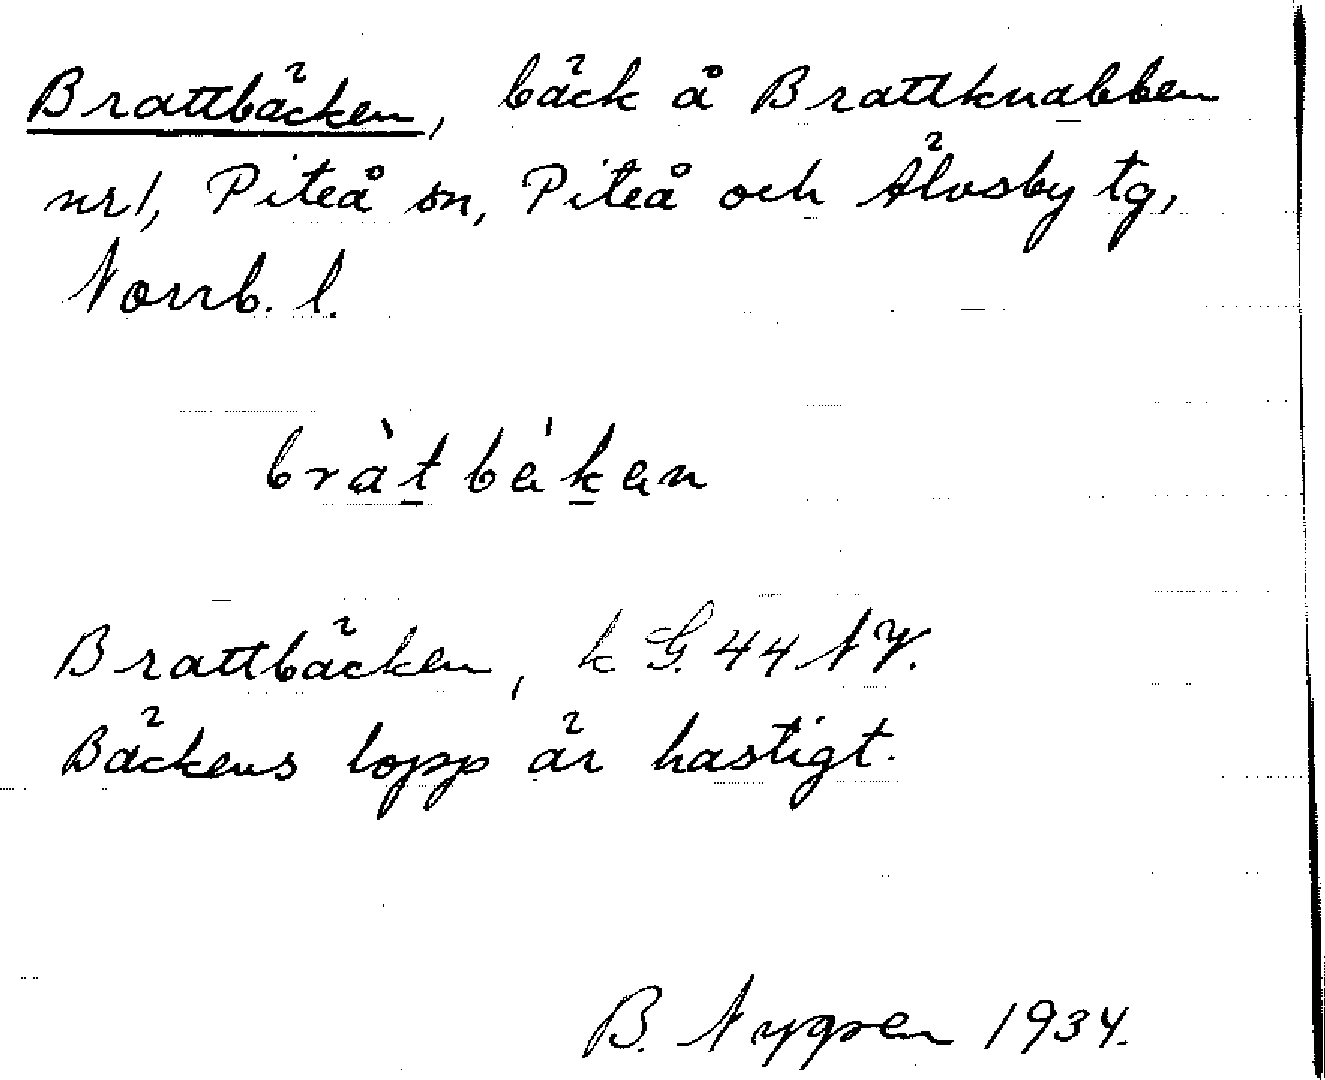 Brattbäcken, bäck å Brattknabben
nr 1, Piteå sn, Piteå och Älvsby tg,
Norrb. l.
bràtbe̍kən
Brattbäcken, k G. 44 NV.
Bäckens lopp är hastigt.
B. Nygren 1934.